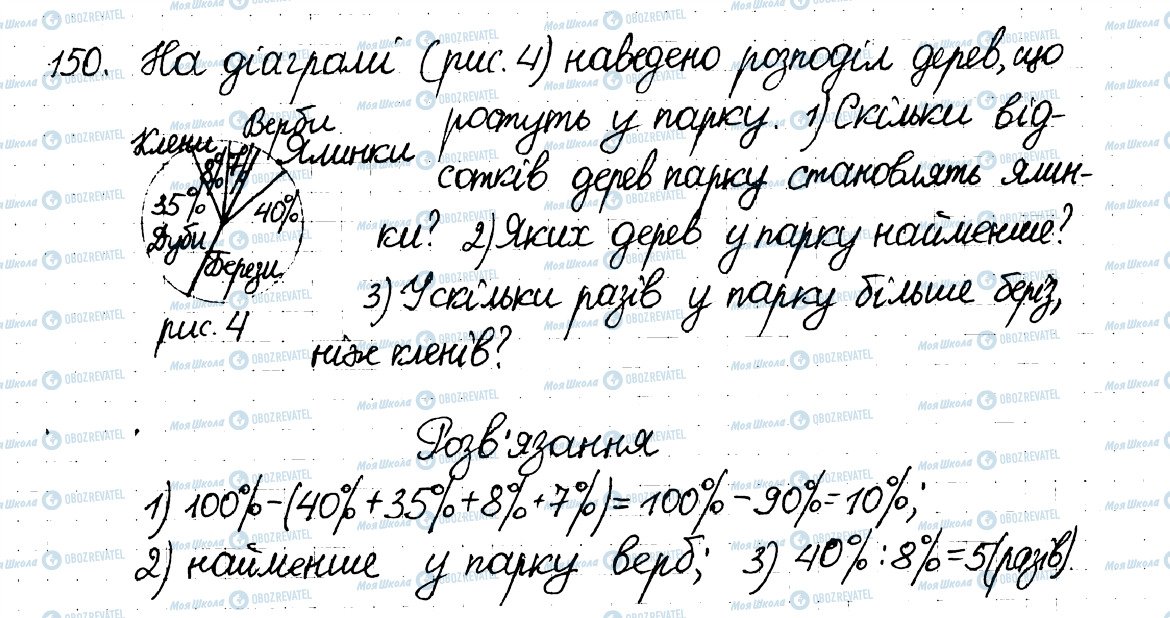 150. На діаграмі (рис. 4) наведено розподіл дерев, що
ростуть у парку. 1) Скільки від-
сотків дерев парку становлять ялин-
ки? 2) Яких дерев у парку найменше?
3) У скільки разів у парку більше беріз,
ніж кленів?
Клени
Верби
Ялинки
8%
7%
35%
40%
Дуби
Берези
рис. 4
Розв'язання
1) 100% - (40% + 35% + 8% + 7%) = 100% - 90% = 10%;
2) найменше у парку верб; 3) 40% : 8% = 5 (разів).
МояШкола OBOZREVATEL